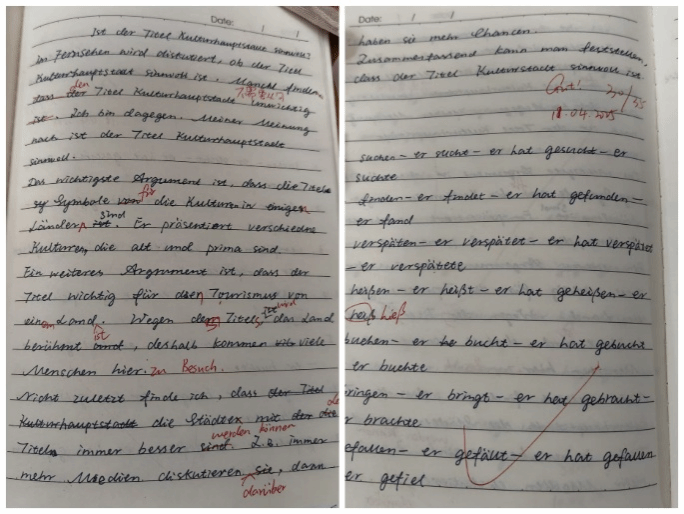 Date: / /
Ist der Titel Kulturhauptstadt sinnvoll?
Im Fernsehen wird diskutiert, ob der Titel
Kulturhauptstadt sinnvoll ist. Manche finden,
den
dass der Titel Kulturhauptstadt unwichtig
ist. Ich bin dagegen. Meiner Meinung
nach ist der Titel Kulturhauptstadt
sinnvoll.
Das wichtigste Argument ist, dass die Titels
für
Symbole von die Kulturen in einigen
sind
Ländern ist. Er präsentiert verschiedene
Kulturen, die alt und prima sind.
Ein weiteres Argument ist, dass der
Titel wichtig für den Tourismus von
einem Land. Wegen des Titels ist das Land
ist
berühmt und, deshalb kommen viele
Menschen hier. zu Besuch.
Nicht zuletzt finde ich, dass der Titel
Kulturhauptstadt die Städten mit der die
werden können
Titeln immer besser sind. Z.B. immer
mehr Medien diskutieren sie, dann
darüber
Date: / /
haben sie mehr Chancen.
Zusammenfassend kann man feststellen,
dass der Titel Kulturstadt sinnvoll ist.
Gut! 30/35
11.04.2005
suchen – er sucht – er hat gesucht – er
suchte
finden – er findet – er hat gefunden –
er fand
verspäten – er verspätet – er hat verspätet
– er verspätete
heißen – er heißt – er hat geheißen – er
heiß hieß
buchen – er bucht – er hat gebucht
er buchte
bringen – er bringt – er hat gebracht –
er brachte
gefallen – er gefällt – er hat gefallen
er gefiel